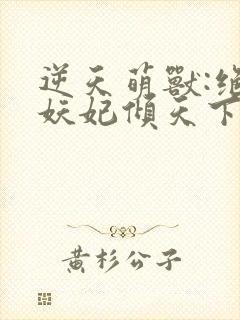 逆天萌獸:絕
妖妃傾天下
黃杉公子